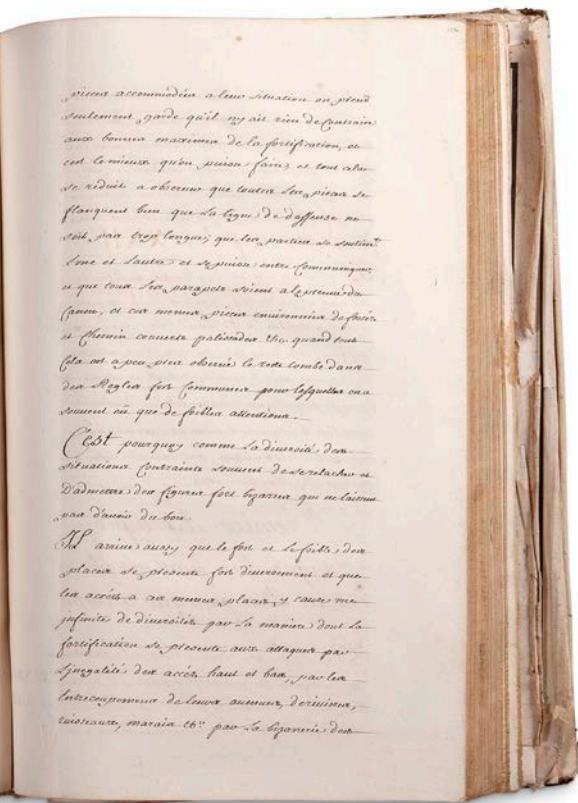 pieces accommodées a leur situation on prend
seulement garde qu'il ny ait rien de Contraire
aux bonnes maximes de la fortification, et
cest le mieux qu'on puisse faire, et tout cela
se reduit a observer que toutes les pieces se
flanquent bien que la ligne de deffense ne
soit pas trop longue; que les parties se soutien.t
Lune et lautre et se puisse entre Communiquer,
et que tous les parapets soient a lepreuve du
Canon, et ces mesmes pieces environnées de fossés
et Chemin couverts palissadés &c. quand tout
Cela est a peu pres observé le reste tombe dans
des Regles fort Communes pour lesquelles on a
souvent eü que de foibles attentions.
C'est pourquoy comme la diversité des
situations Contraints souvent de se relacher et
D'admettre des figures fort bizarres qui ne laissent
pas d'avoir du bon.
Il arrive aussy que le fort et le foible des
places se presente fort diversement et que
les accés a ces mesmes places, y cause une
jnfinité de diversités par la maniere dont la
fortification se presente aux attaques par
Ljnegalité des accés haut et bas, par les
Entrecoupemens de leurs avenues, de rivieres,
ruisseaux, marais &c.ª par la bizarerie des